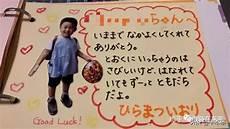 ちゃんへ
いままで なかよしくてくれて
ありがとう。
とおくに いっちゃうのは
さびしいけど、はなれて
いても ずーっと ともだち
だよ。
ひらまつ いおり
Good Luck!